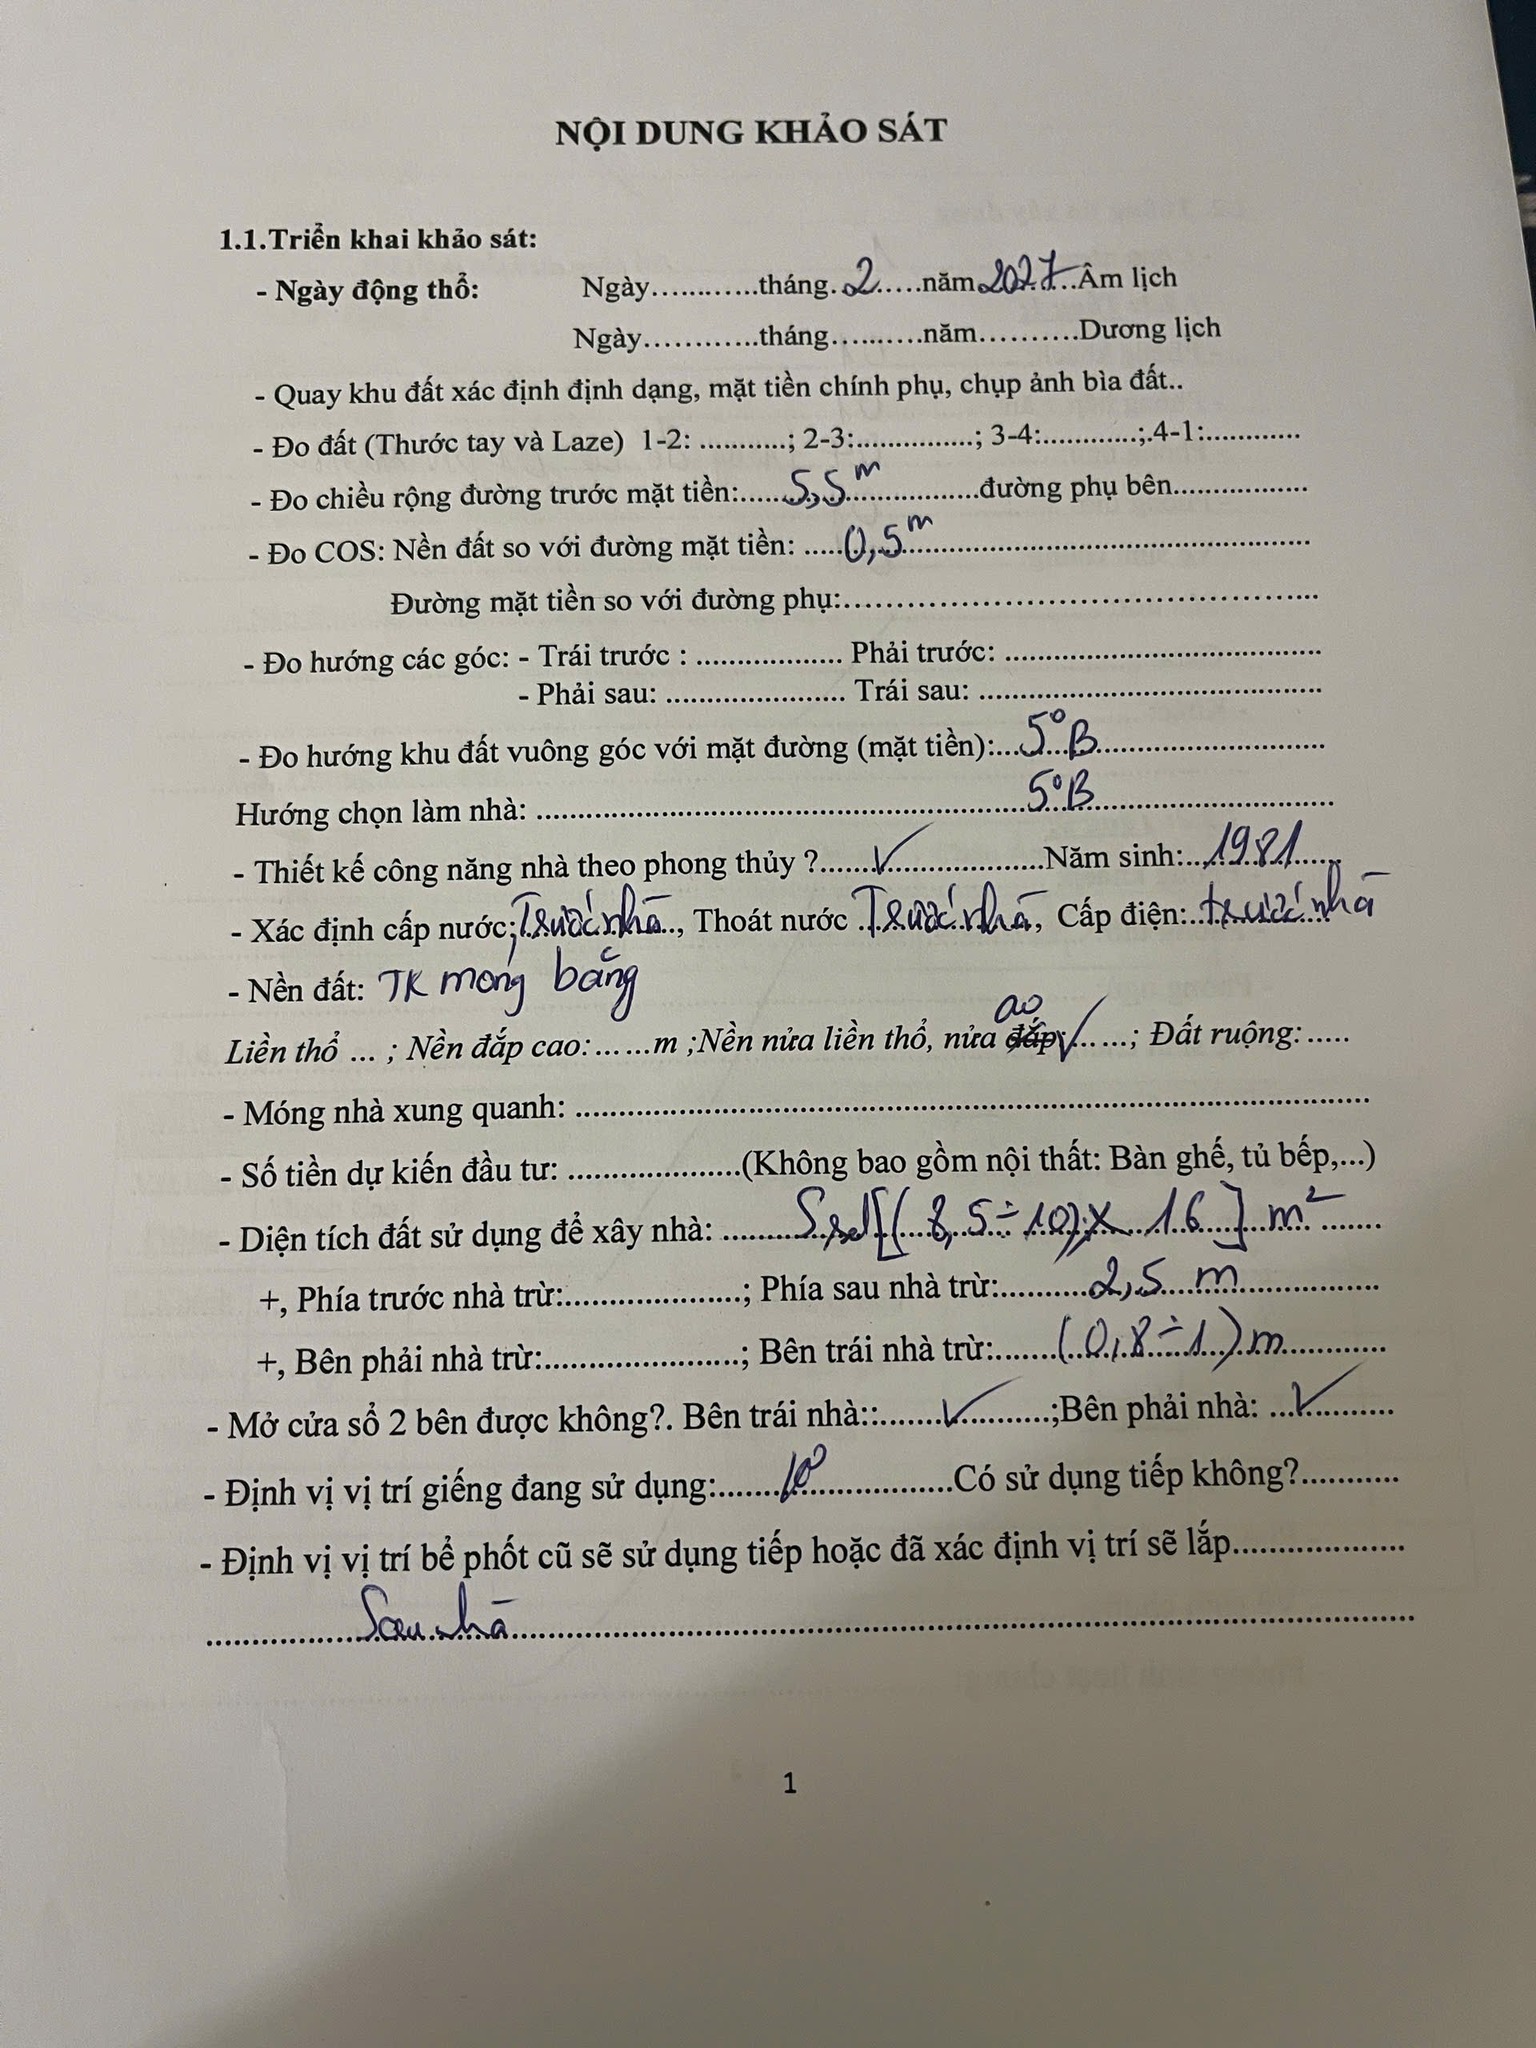 NỘI DUNG KHẢO SÁT
1.1.Triển khai khảo sát:
- Ngày động thổ: Ngày............tháng.2.....năm 2027...Âm lịch
Ngày............tháng..........năm..........Dương lịch
- Quay khu đất xác định định dạng, mặt tiền chính phụ, chụp ảnh bìa đất..
- Đo đất (Thước tay và Laze) 1-2: ...........; 2-3:...............; 3-4:............;.4-1:............
- Đo chiều rộng đường trước mặt tiền:.....5,5m.................đường phụ bên.................
- Đo COS: Nền đất so với đường mặt tiền: .....0,5m..................................................
Đường mặt tiền so với đường phụ:..................................................
- Đo hướng các góc: - Trái trước : ................... Phải trước: ........................................
- Phải sau: ....................... Trái sau: ............................................
- Đo hướng khu đất vuông góc với mặt đường (mặt tiền):...5°B.............................
Hướng chọn làm nhà: ...............................................................5°B...............................
- Thiết kế công năng nhà theo phong thủy ?.......✓....................Năm sinh:..1981......
- Xác định cấp nước: Trước nhà.., Thoát nước Trước nhà, Cấp điện:..trước nhà
- Nền đất: TK móng băng
ao
Liền thổ ... ; Nền đắp cao: ......m ;Nền nửa liền thổ, nửa đắp:✓......; Đất ruộng: .....
- Móng nhà xung quanh: ....................................................................................................
- Số tiền dự kiến đầu tư: ......................(Không bao gồm nội thất: Bàn ghế, tủ bếp,...)
- Diện tích đất sử dụng để xây nhà: ..........Ssd[(8,5÷10) x 16] m².......
+, Phía trước nhà trừ:......................; Phía sau nhà trừ:...........2,5 m..................
+, Bên phải nhà trừ:.........................; Bên trái nhà trừ:.......(0,8÷1) m.............
- Mở cửa sổ 2 bên được không?. Bên trái nhà::.......✓...........;Bên phải nhà: ...✓..........
- Định vị vị trí giếng đang sử dụng:...........................Có sử dụng tiếp không?............
- Định vị vị trí bể phốt cũ sẽ sử dụng tiếp hoặc đã xác định vị trí sẽ lắp....................
...................Sau nhà....................................................................................................
1